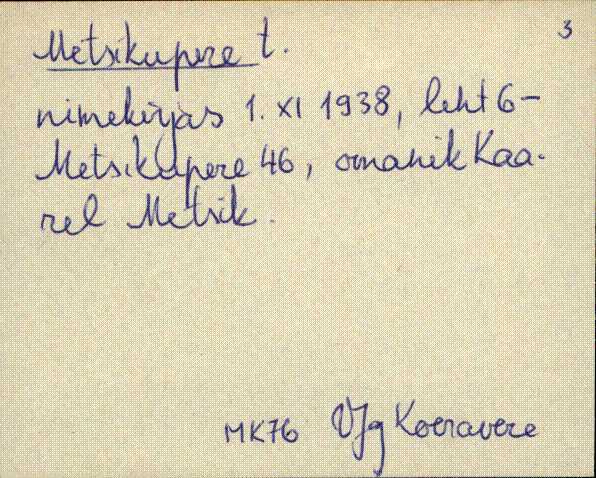 3
Metsikupere t.
nimekirjas 1. XI 1938, leht 6-
Metsikupere 46, omanik Kaa-
rel Metsik.
MK76 VJg Koeravere